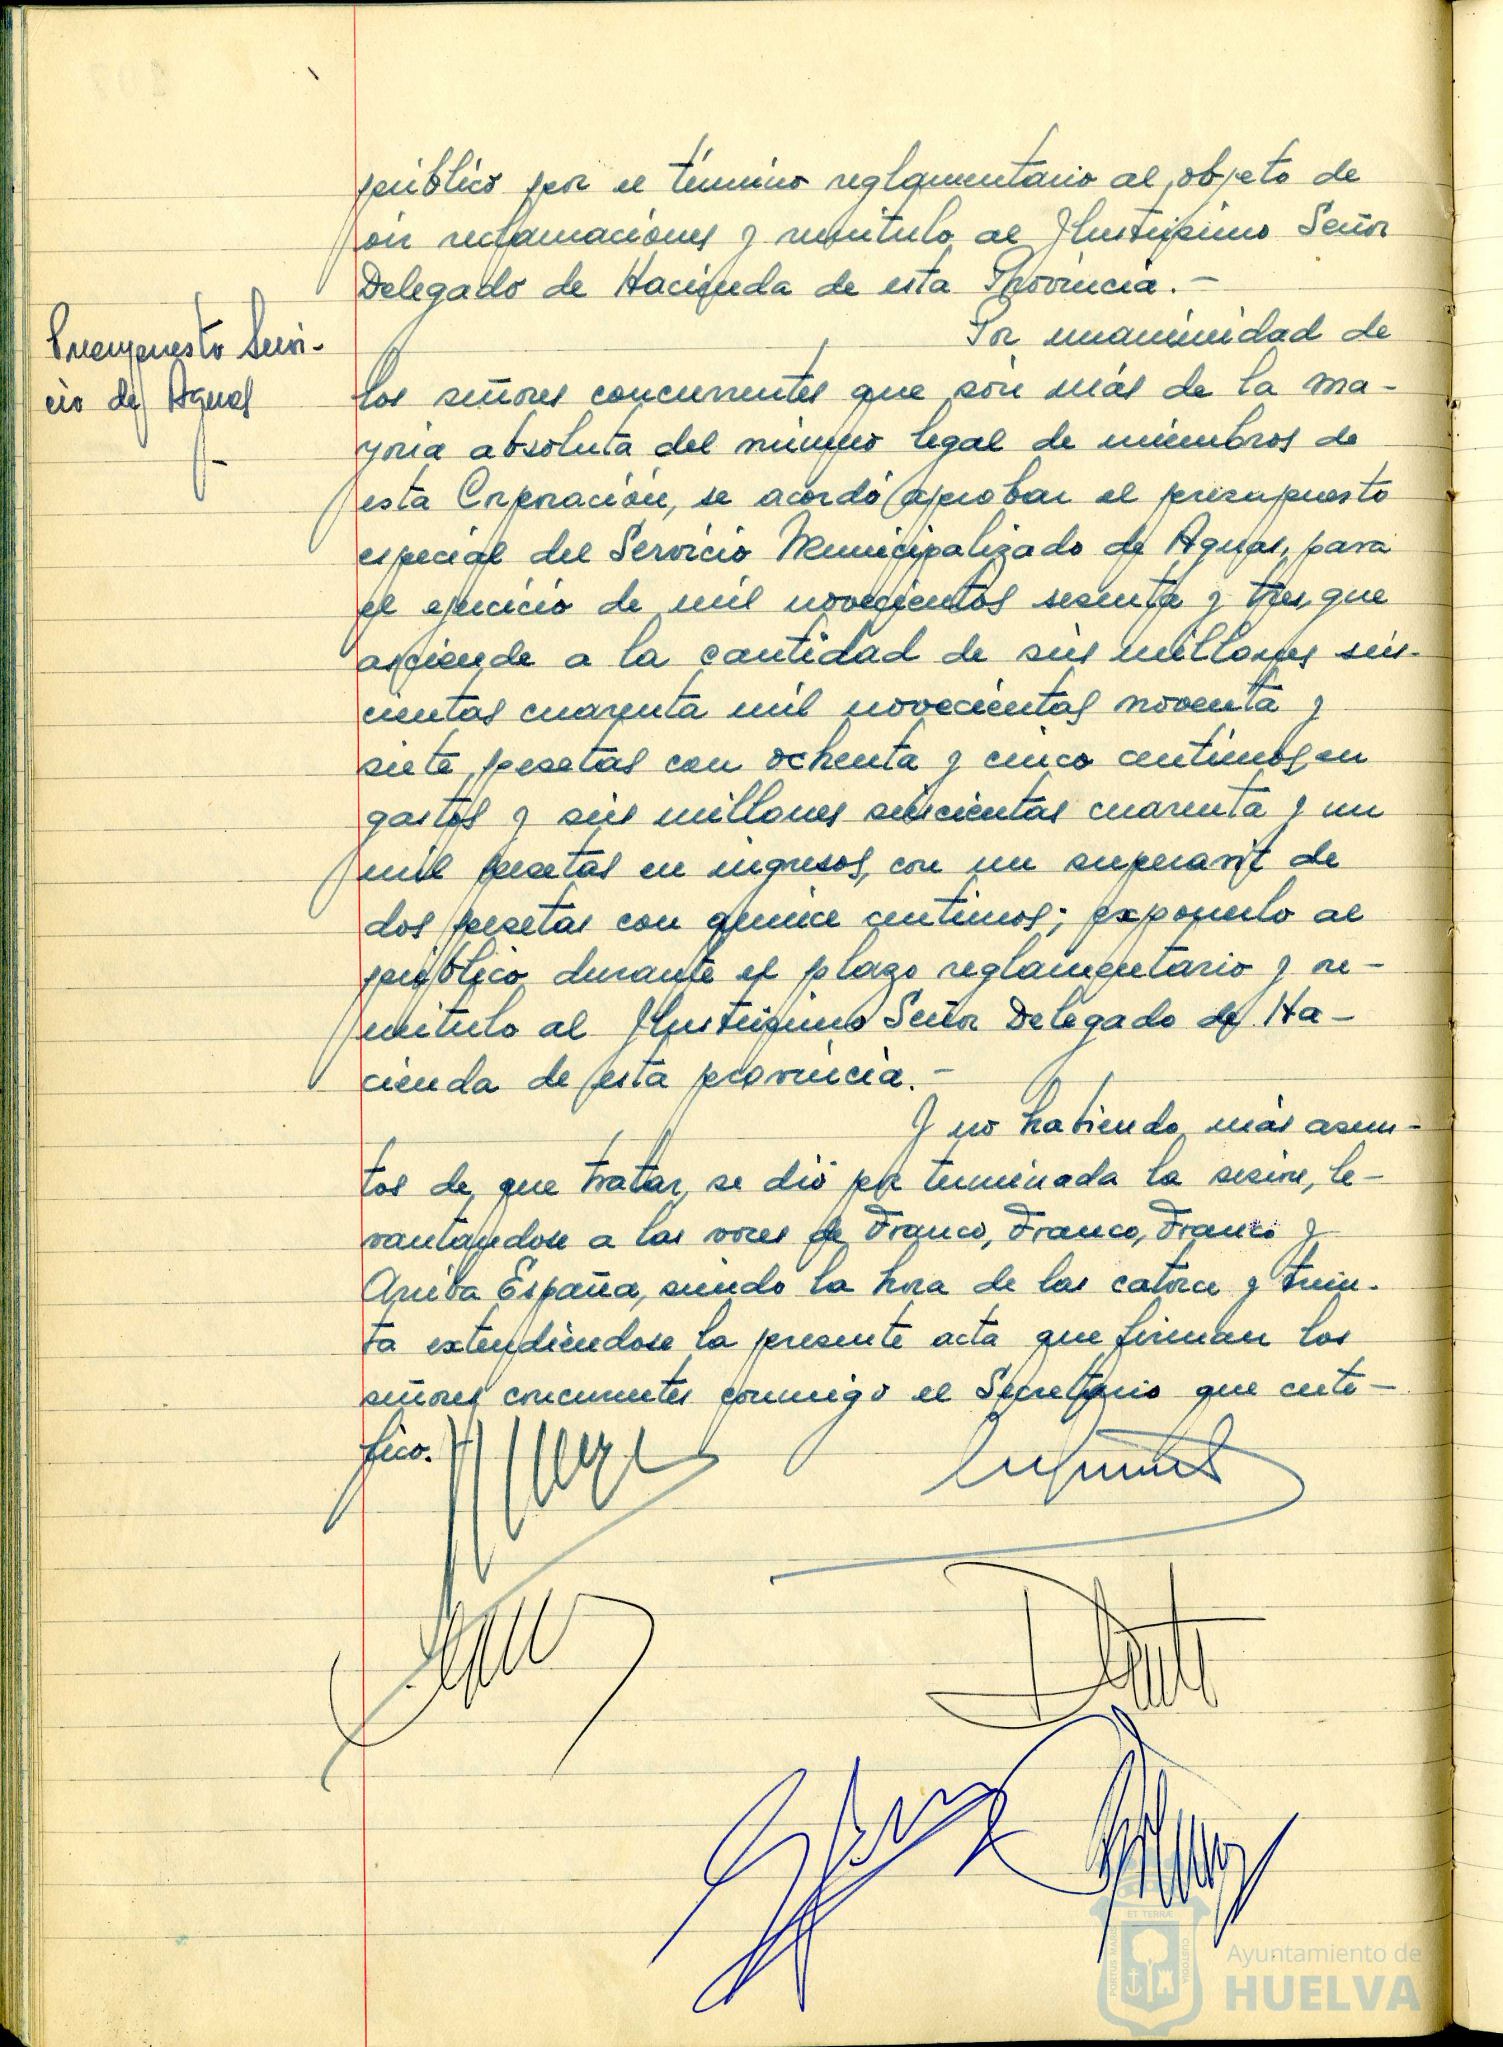 público por el término reglamentario al objeto de
oir reclamaciones y remitirlo al Ilustrísimo Señor
Delegado de Hacienda de esta Provincia.-
Presupuesto Servi-
cio de Aguas
Por unanimidad de
los señores concurrentes que son más de la ma-
yoria absoluta del número legal de miembros de
esta Corporación, se acordó aprobar el presupuesto
especial del Servicio Municipalizado de Aguas, para
el ejercicio de mil novecientos sesenta y tres, que
asciende a la cantidad de seis millones seis-
cientas cuarenta mil novecientas noventa y
siete pesetas con ochenta y cinco centimos, en
gastos y seis millones seiscientas cuarenta y un
mil pesetas en ingresos, con un superavit de
dos pesetas con quince centimos; exponerlo al
público durante el plazo reglamentario y re-
mitirlo al Ilustrisimo Señor Delegado de Ha-
cienda de esta provincia.-
Y no habiendo más asun-
tos de que tratar, se dió por terminada la sesión, le-
vantandose a las voces de Franco, Franco, Franco y
Arriba España, siendo la hora de las catorce y trein-
ta extendiendose la presente acta que firman los
señores concurrentes conmigo el Secretario que certi-
fico.
ET TERRAE
PORTUS MARIS
CUSTODIA
Ayuntamiento de
HUELVA